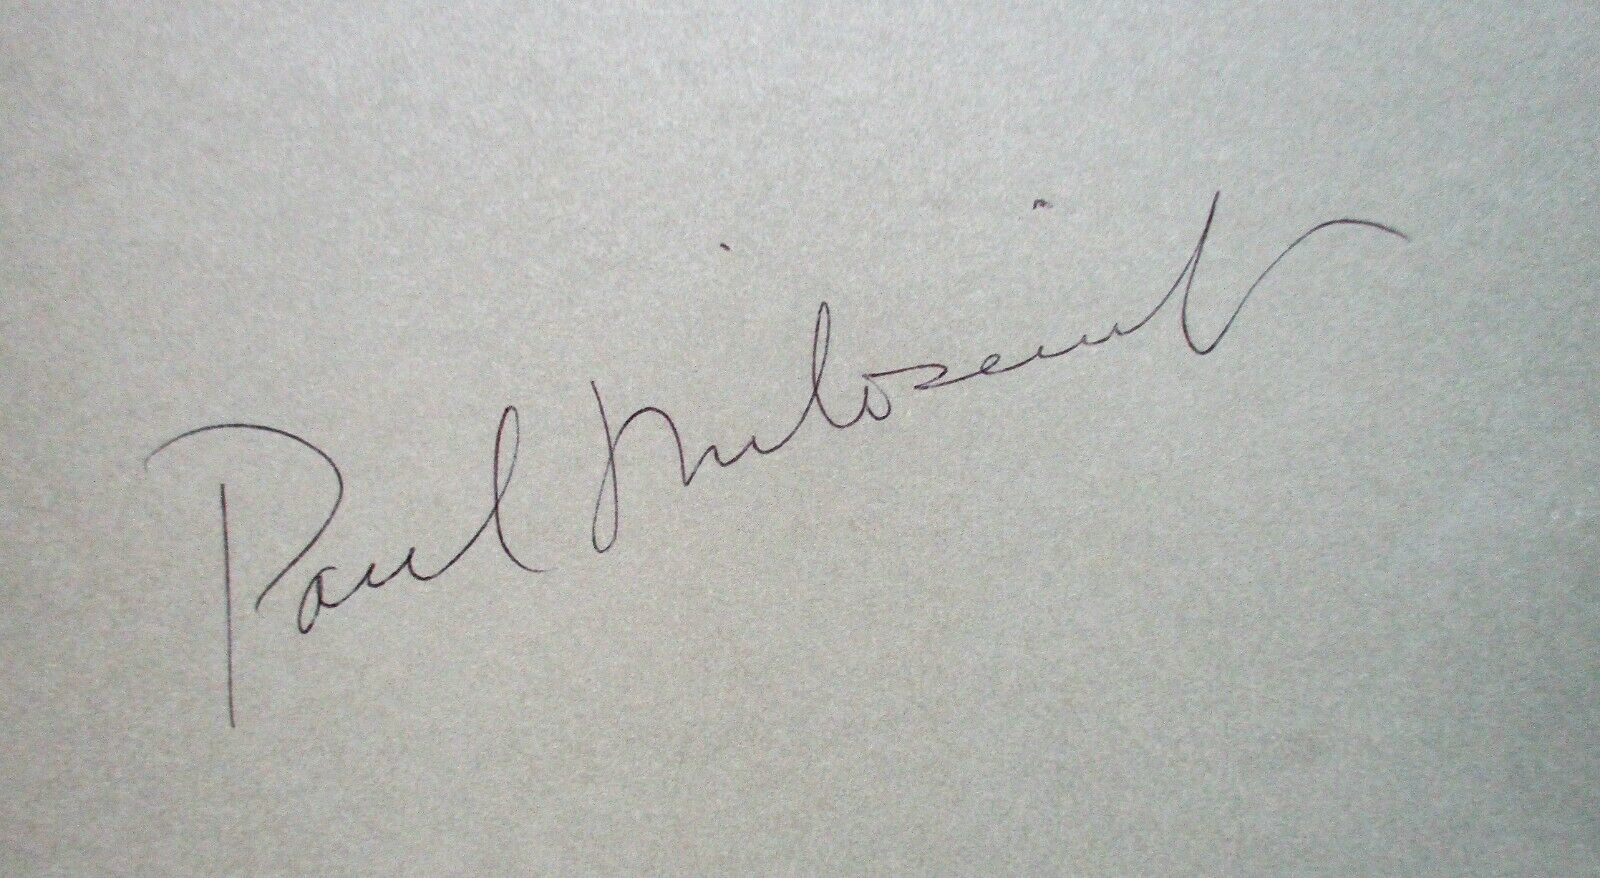 Paul Milosevich